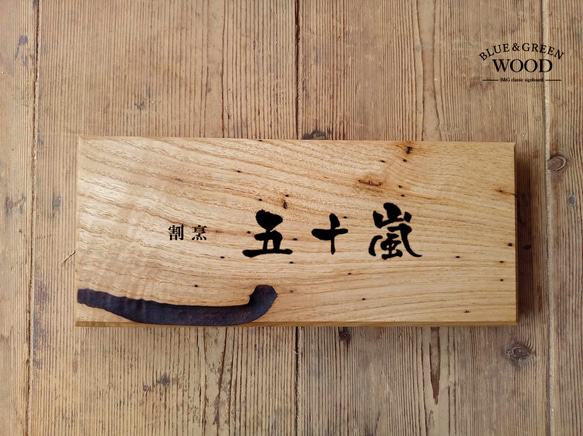 BLUE & GREEN
WOOD
B&G classic signboard
割烹 五十嵐